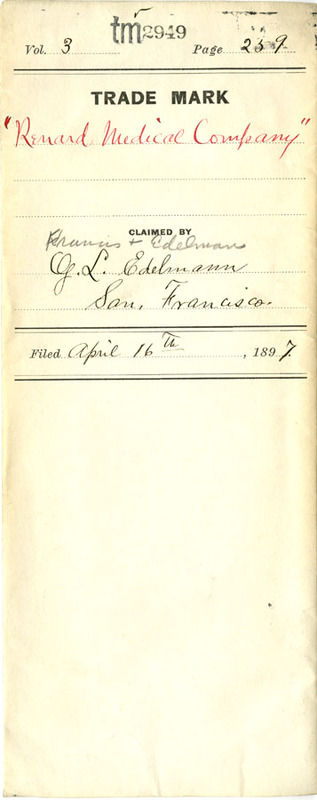 tm2949
Vol. 3 Page 259
TRADE MARK
"Renard Medical Company"
CLAIMED BY
Francis + Edelman
G. L. Edelmann
San. Francisco.
Filed April 16th, 1897.